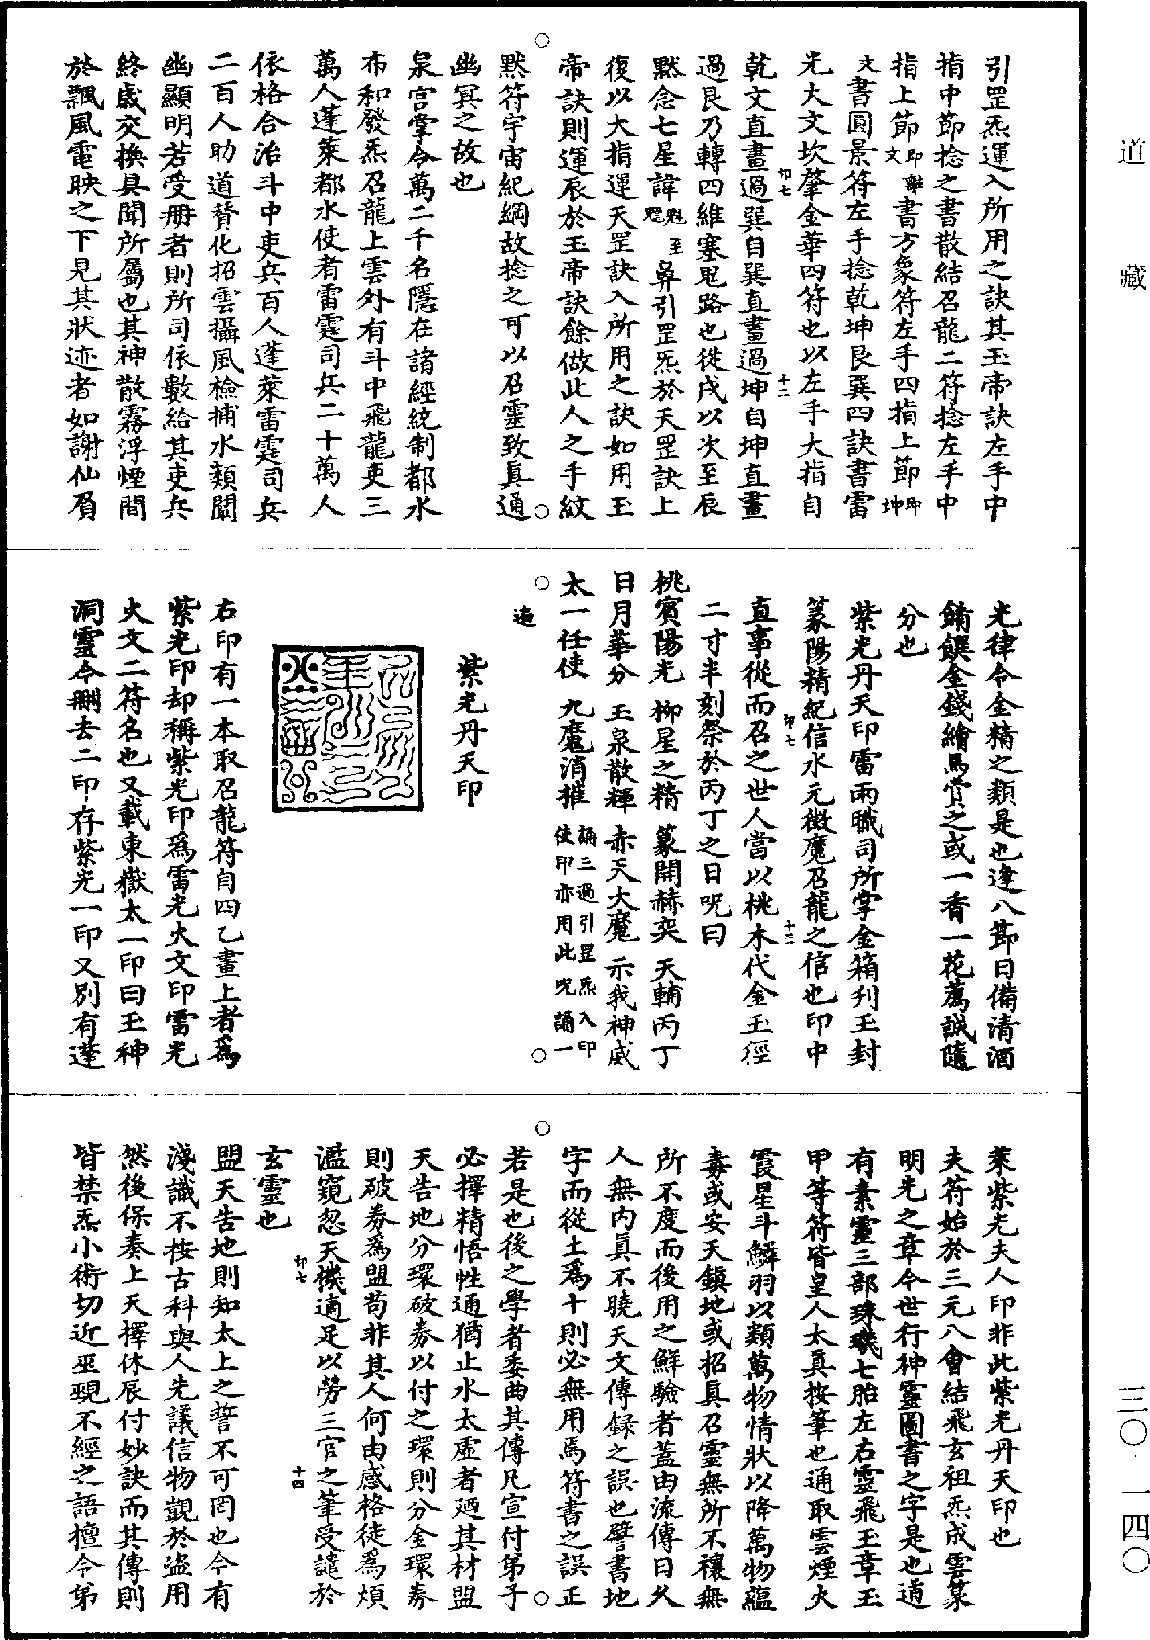 道藏
三〇·一四〇
引罡炁運入所用之訣其玉帝訣左手中
指中節捻之書散結召龍二符捻左手中
指上節即離文書方象符左手四指上節即坤
文書圓景符左手捻乾坤艮巽四訣書雷
光大文坎肇金華四符也以左手大指自
乾文直畫過巽自巽直畫過坤自坤直畫
過艮乃轉四維塞鬼路也從戌以次至辰
默念七星諱魁魁至昇引罡炁於天罡訣上
復以大指運天罡訣入所用之訣如用玉
帝訣則運辰於玉帝訣餘倣此人之手紋
默符宇宙紀綱故捻之可以召靈致真通
幽冥之故也
泉宮掌令萬二千名隱在諸經統制都水
布和發炁召龍上雲外有斗中飛龍吏三
萬人蓬萊都水使者雷霆司兵二十萬人
依格合治斗中吏兵百人蓬萊雷霆司兵
二百人助道替化招雲攝風檢捕水類闡
幽顯明若受冊者則所司依數給其吏兵
終歲交換具聞所屬也其神散霧浮煙間
於飄風電映之下見其狀迹者如謝仙眉
光律令金精之類是也逢八節日備清酒
餚饌金錢繪馬賞之或一香一花薦誠隨
分也
紫光丹天印雷雨職司所掌金箱刋玉封
篆陽精紀信水元徵魔召龍之信也印中
直事從而召之世人當以桃木代金玉徑
二寸半刻祭於丙丁之日呪曰
桃賓陽光 柳星之精 篆開赫奕 天輔丙丁
日月華分 玉泉散輝 赤天大魔 示我神威
太一任使 九魔消摧 誦三過引罡炁入印使印亦用此呪誦一
遍
紫光丹天印
右印有一本取召龍符自四乙畫上者爲
紫光印却稱紫光印爲雷光火文印雷光
火文二符名也又載東嶽太一印曰玉神
洞靈今刪去二印存紫光一印又別有蓬
萊紫光夫人印非此紫光丹天印也
夫符始於三元八會結飛玄祖炁成雲篆
明光之章今世行神靈圖書之字是也逍
有素靈三部珠璣七胎左右靈飛玉章玉
甲等符皆皇人太真按筆也通取雲煙火
霞星斗鱗羽以類萬物情狀以降萬物蘊
毒或安天鎮地或招真召靈無所不禳無
所不度而後用之鮮驗者蓋由流傳日久
人無內真不曉天文傳録之誤也譬書地
字而從土爲十則必無用焉符書之誤正
若是也後之學者委曲其傳凡宣付弟子
必擇精悟性通猶止水太虛者廼其材盟
天告地分環破券以付之環則分金環券
則破券爲盟苟非其人何由感格徒爲煩
濫窺忽天機適足以勞三官之筆受譴於
玄靈也
盟天告地則知太上之誓不可罔也今有
淺識不按古科與人先議信物觀於盜用
然後保奏上天擇休辰付妙訣而其傳則
皆禁炁小術切近巫覡不經之語檀令弟